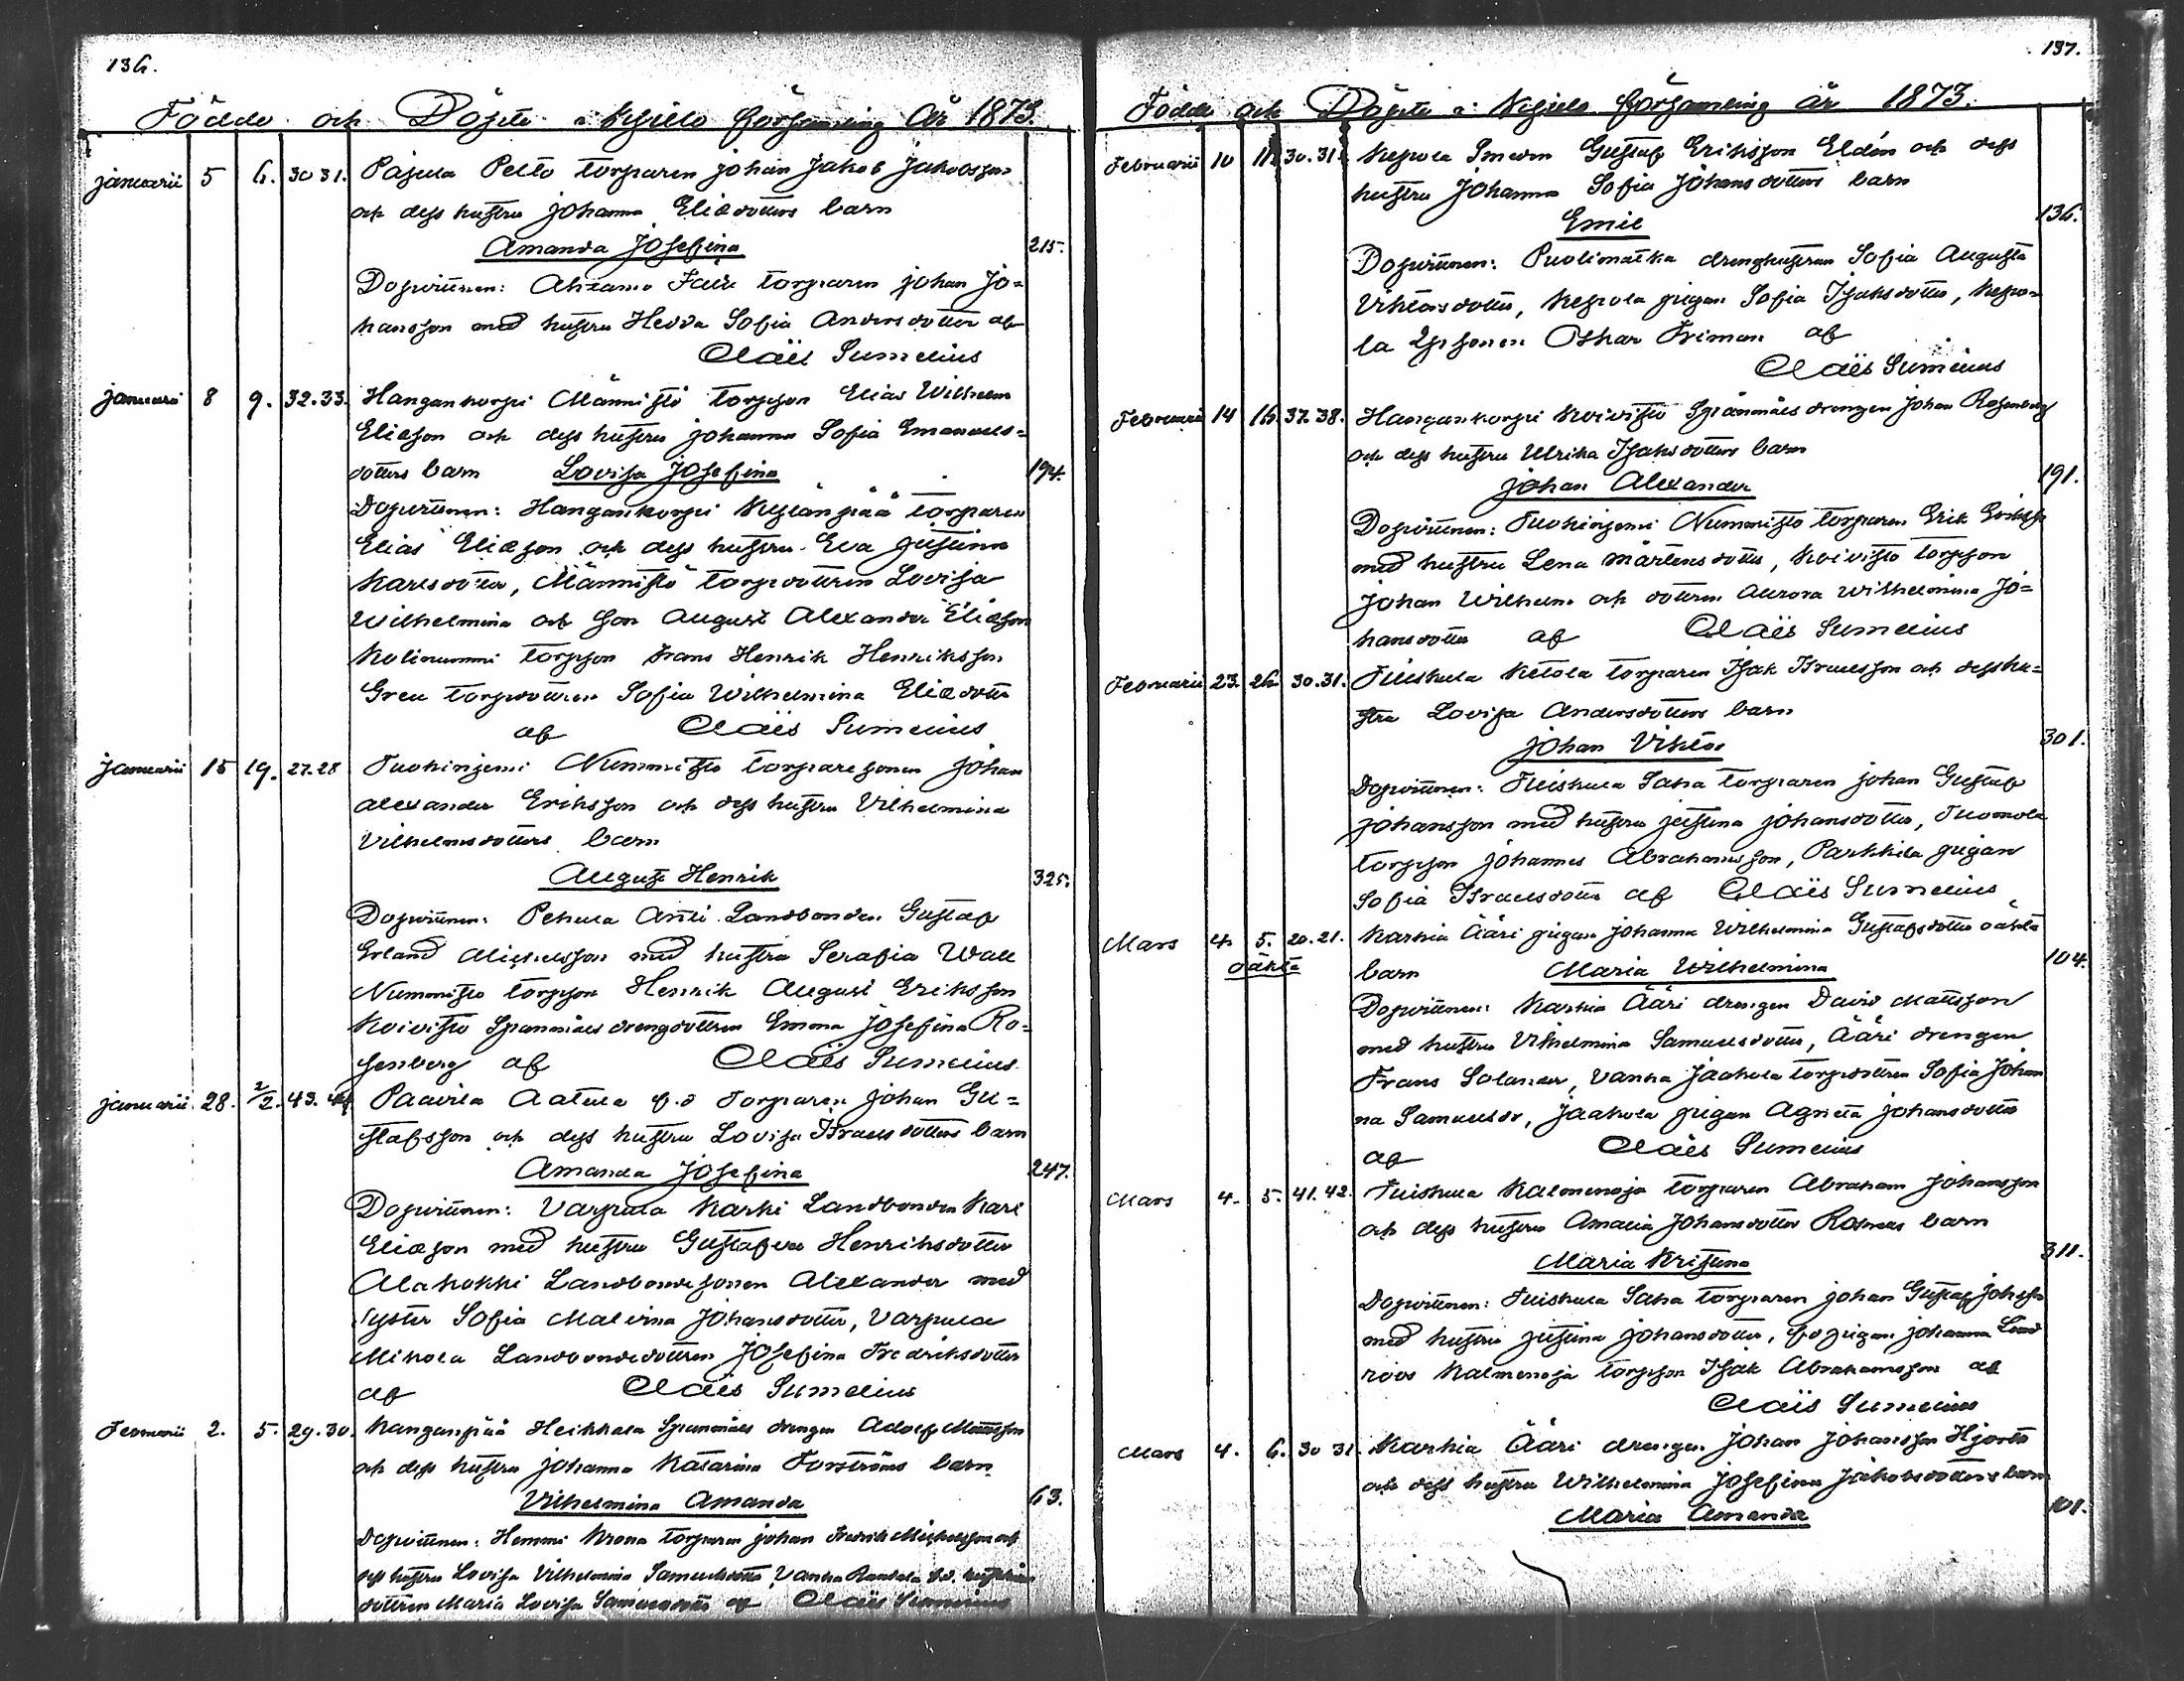 136.
Födde och Döpte i Kjulo församling År 1873.
januarii 5 6. 30 31. Pajula Pelto torparen johan jakob jakobsson
och dess hustru johanna Eliædotters barn
Amanda Josefina 215.
Dopvittnen: torparen johan Jo=
hansson med hustru Hedda Sofia Andersdotter af
Claës Sumelius
januarii 8 9. 32.33. Hangankorpi Männistö torpson Elias Wilhelm
Eliæson och dess hustru johanna Sofia Emanuels=
dotters barn Lovisa Josefina 194.
Dopvittnen: Hangankorpi Kylänpää torparen
Elias Eliæson och dess hustru Eva justina
Karlsdotter, Männistö torpdottren Lovisa
Wilhelmina och son August Alexander Eliæson
Kolinummi torpson Frans Henrik Henriksson
Greu torpdottren Sofia Wilhelmina Eliædotter
af Claës Sumelius
Januarii 15 19. 27.28 Tuohiniemi Nummisto torparesonen johan
alexander Eriksson och dess hustru Vilhelmina
Vilhelmsdotters barn
August Henrik 325.
Dopvittnen: Pehula Antti Landbonden Gustaf
Erland Michelsson med hustru Serafia Wall
Nummisto torpson Henrik August Eriksson
Koivisto Spanmåls drengdottren Emma Josefina Ro=
senberg af Claës Sumelius
januarii 28. 2/2. 43. 44 Paavila Aatula f.d Torparen johan Gu=
stafsson och dess hustru Lovisa Israelsdotters barn
Amanda Josefina 247.
Dopvittnen: Varpula Karhi Landbonden Karl
Eliæson med hustru Gustafva Henriksdotter
Alakokki Landbondesonen Alexander med
syster Sofia Malvina Johansdotter, Varpula
Mikola Landbondedottren Josefina Fredriksdotter
af Claës Sumelius
Februarii 2. 5. 29.30. Kanganpää Heikkala Spanmåls drengen Adolf Mattsson
och dess hustru johanna Katarina Forströms barn
Vilhelmina Amanda 63.
Dopvittnen: Hemmi Krona torparen johan Fredrik Michelsson och
dess hustru Lovisa Vilhelmina Samuelsdotter, Vanha
dottren Maria Lovisa Samuelsdotter af Claës Sumelius
137.
Födde och Döpte i Kjulo församling år 1873.
Februarii 10 11. 30.31. Kepola Smeden Gustaf Eriksson Eldén och dess
hustru Johanna Sofia Johansdotters barn
Emil 136.
Dopvittnen: Puolimatka drenghustrun Sofia Augusta
Viktorsdotter, Kepola pigan Sofia Isaksdotter, Kepo=
la Oskar Friman af
Claës Sumelius
Februarii 14 16. 37.38. Hangankorpi Koivisto Spanmåls drengen Johan Rosenberg
och dess hustru Ulrika Isaksdotters barn
johan Alexander 191.
Dopvittnen: Tuohiniemi Nummisto torparen Erik Eriksson
med hustru Lena Mårtensdotter, Koivisto torpson
Johan Wilhelm och dottren Aurora Wilhelmina Jo=
hansdotter af Claës Sumelius
Februarii 23. 26. 30.31. Tuiskula Ketola torparen Isak Israelsson och dess hu=
stru Lovisa Andersdotters barn
johan Viktor 301.
Dopvittnen: Tuiskula Saha torparen johan Gustaf
johansson med hustru justina johansdotter, Tuomola
torpson johannes Abrahamsson, Parkkila pigan
Sofia Israelsdotter af Claës Sumelius
Mars 4. 5. 20.21. Karhia Ääri pigan johanna Wilhelmina Gustafsdotter oäkta
oäkta barn Maria Wilhelmina 104.
Dopvittnen: Karhia Ääri drengen David Mattsson
med hustru Vilhelmina Samuelsdotter, Ääri drengen
Frans Solander, Vanha Jaakola torpdottren Sofia Johan
na Samuelsdr, Jaakola pigan Agneta johansdotter
af Claës Sumelius
Mars 4. 5. 41.42. Tuiskula Kalmenoja torparen Abraham Johansson
och dess hustru Amalia Johansdotter Rosnas barn
Maria Kristina 311.
Dopvittnen: Tuiskula Saha torparen johan Gustaf johansson
med hustru justina johansdotter, pigan johanna Lind
roos Kalmenoja torpson Isak Abrahamsson af
Claës Sumelius
Mars 4. 6. 30 31. Karhia Ääri drengen Johan Johansson Hjorth
och dess hustru Wilhelmina Josefina Jakobsdotters barn
Maria Amanda 101.